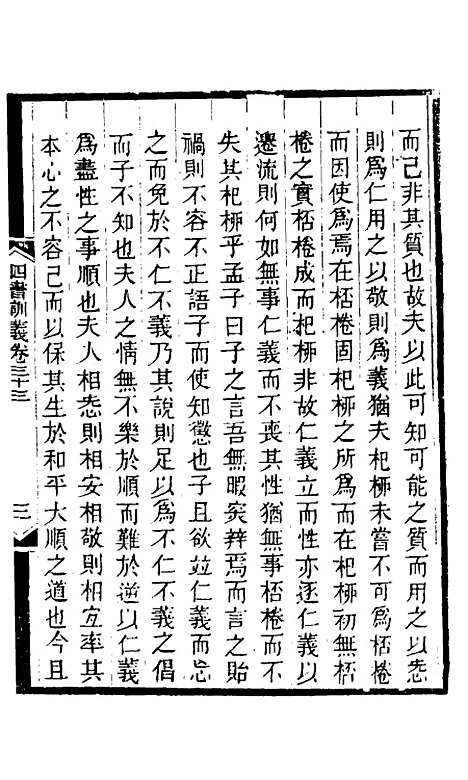 而已非其質也故夫以此可知可能之質而用之以恕
則爲仁用之以敬則爲義猶夫杞柳未嘗不可爲桮棬
而因使爲焉在桮棬固杞柳之所爲而在杞柳初無桮
棬之實桮棬成而杞柳非故仁義立而性亦逐仁義以
遷流則何如無事仁義而不喪其性猶無事桮棬而不
失其杞柳乎孟子曰子之言吾無暇突辯焉而言之貽
禍則不容不正語子而使知懲也子且欲竝仁義而忘
之而免於不仁不義乃其說則足以爲不仁不義之倡
而子不知也夫人之情無不樂於順而難於逆以仁義
爲盡性之事順也夫人相恕則相安相敬則相宜率其
本心之不容已而以保其生於和平大順之道也今且
四書訓義卷三十三
三